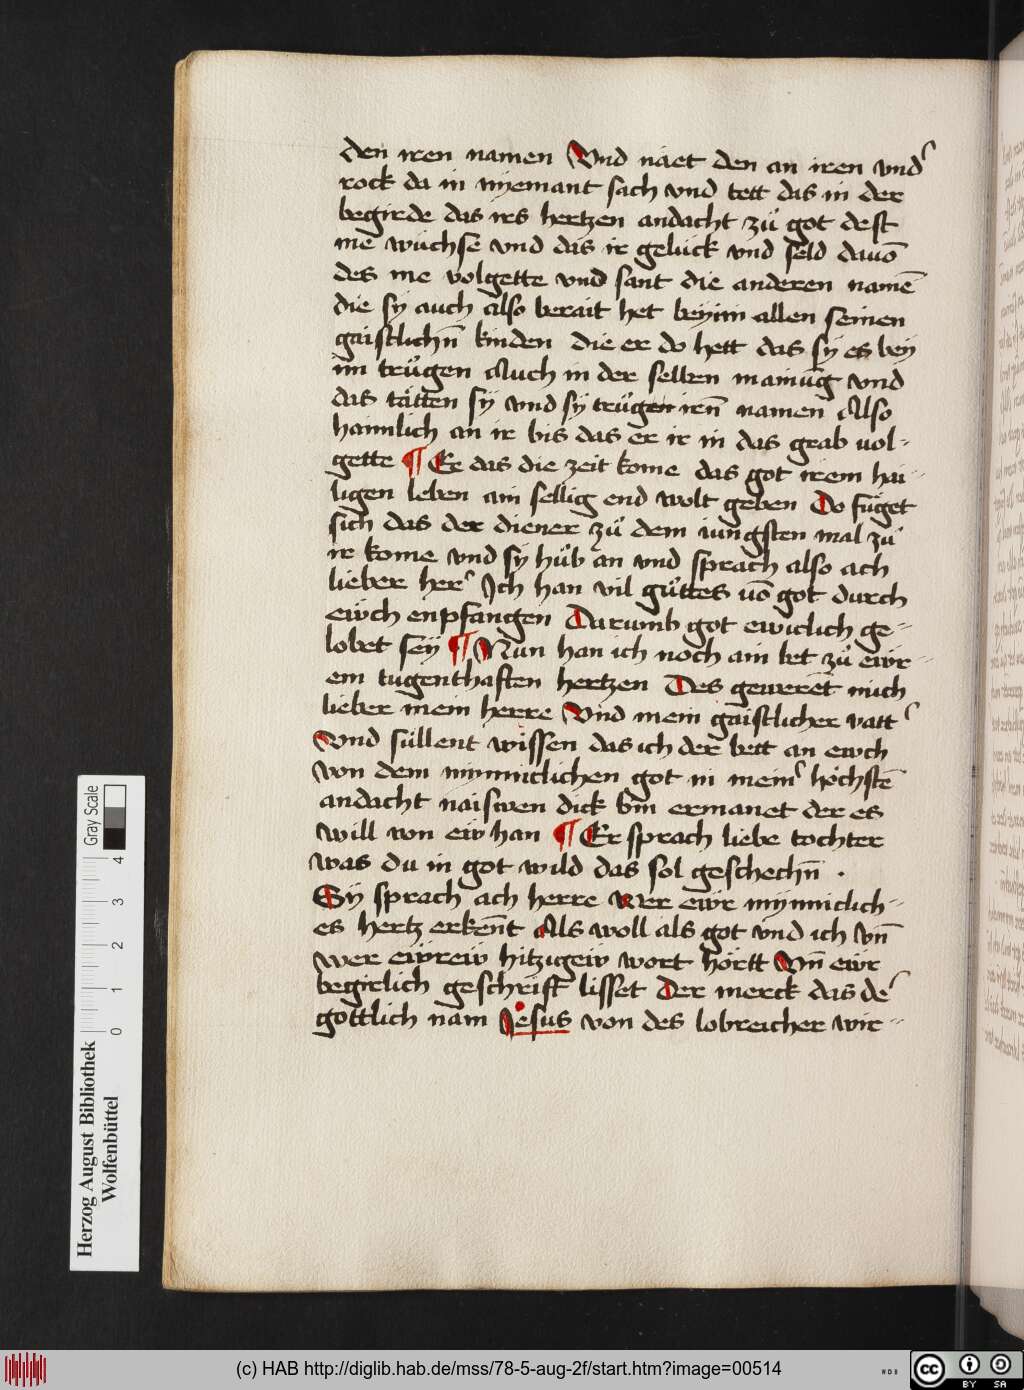 den iren namen Vnd näet den an iren vnder
rock da in nyemant sach vnd tett das in der
begirde das irs hertzen andacht zů got dest
me wůchse vnd das ir gelück vnd seld dauō
des me volgette vnd sant die anderen namē
die sy auch also berait het beyim allen seinen
gaistlichn̄ kinden die er do hett das sy es bey
im trůgen Auch in der selben mainūg vnd
das tätten sy vnd sy trůgen irn̄ namen Also
haimlich an ir bis das er ir in das grab vol-
gette ¶ Er das die zeit kome das got irem hai-
ligen leben ain sellig end wolt geben Do füget
sich das der diener zů dem iungsten mal zů
ir kome vnd sy hůb an vnd sprach also ach
lieber her' Ich han vil gůttes vō got durch
ewch enpfangen Darumb got ewiclich ge-
lobet sey ¶ Nun han ich noch ain bet zů ewr-
em tugenthaften hertzen Des gewerēt mich
lieber mein herre Vnd mein gaistlicher vatt'
Vnd süllent wissen das ich der bett an ewch
von dem mynniclichen got in mein' höchstē
andacht naiswen dick bin ermanet der es
will von ew han ¶ Er sprach liebe tochter
was du in got wild das sol geschechn̄ .
Sy sprach ach herre wer ewr mynniclich-
es hertz erken̄t Als woll als got vnd ich vn̄
wer ewrew hitzigew wort hörtt Vn̄ ewr
begirlich geschrift lisset Der merck das de'
gottlich nam Jesus von des lobreicher wir-
Herzog August Bibliothek
Wolfenbüttel
Gray Scale
0 1 2 3 4
(c) HAB http://diglib.hab.de/mss/78-5-aug-2f/start.htm?image=00514
WDB
cc BY SA